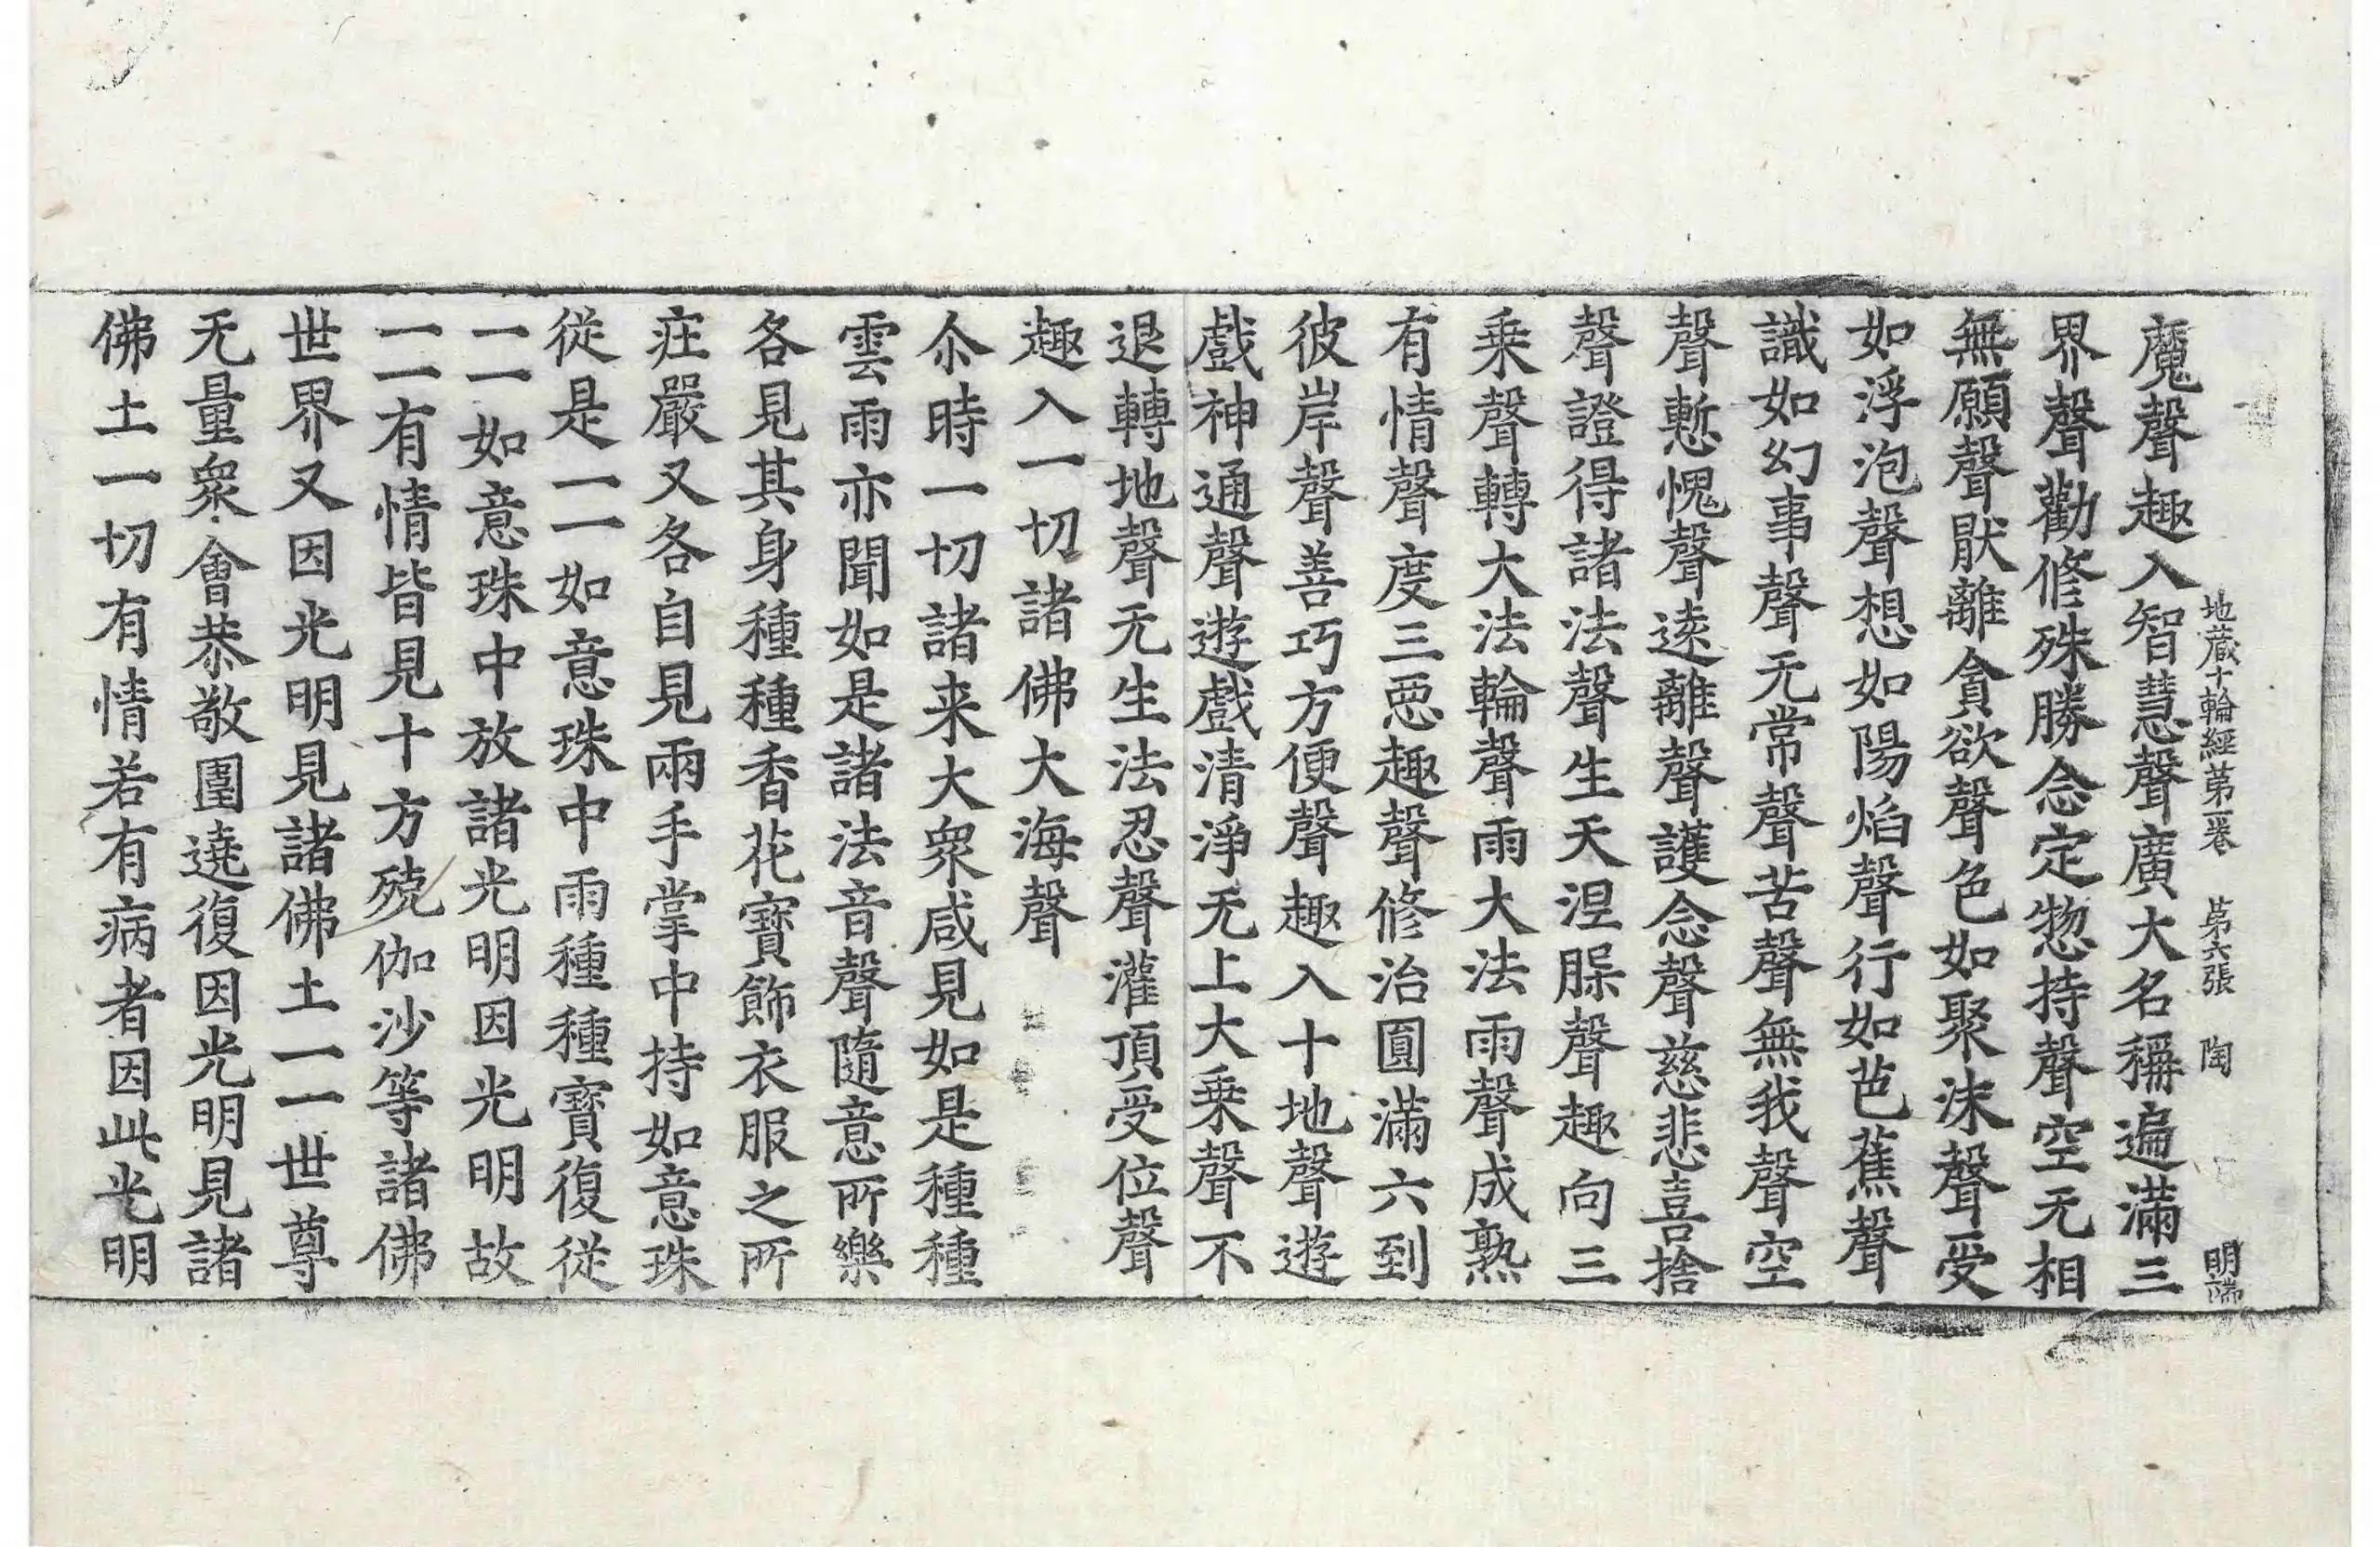 地蔵十輪經第一卷 第六張 陶 明端
魔聲趣入智慧聲廣大名稱遍滿三
界聲勸修殊勝念定惣持聲空无相
無願聲猒離貪欲聲色如聚沫聲受
如浮泡聲想如陽焰聲行如芭蕉聲
識如幻事聲无常聲苦聲無我聲空
聲慙愧聲逺離聲護念聲慈悲喜捨
聲證得諸法聲生天涅槃聲趣向三
乗聲轉大法輪聲雨大法雨聲成熟
有情聲度三惡趣聲修治圓滿六到
彼岸聲善巧方便聲趣入十地聲遊
戲神通聲遊戲清淨无上大乗聲不
退轉地聲无生法忍聲灌頂受位聲
趣入一切諸佛大海聲
尒時一切諸来大衆咸見如是種種
雲雨亦聞如是諸法音聲隨意所樂
各見其身種種香花寶飾衣服之所
莊嚴又各自見兩手掌中持如意珠
従是一一如意珠中雨種種寶復従
一一如意珠中放諸光明因光明故
一一有情皆見十方殑伽沙等諸佛
世界又因光明見諸佛土一一世尊
无量衆會恭敬圍遶復因光明見諸
佛土一切有情若有病者因此光明